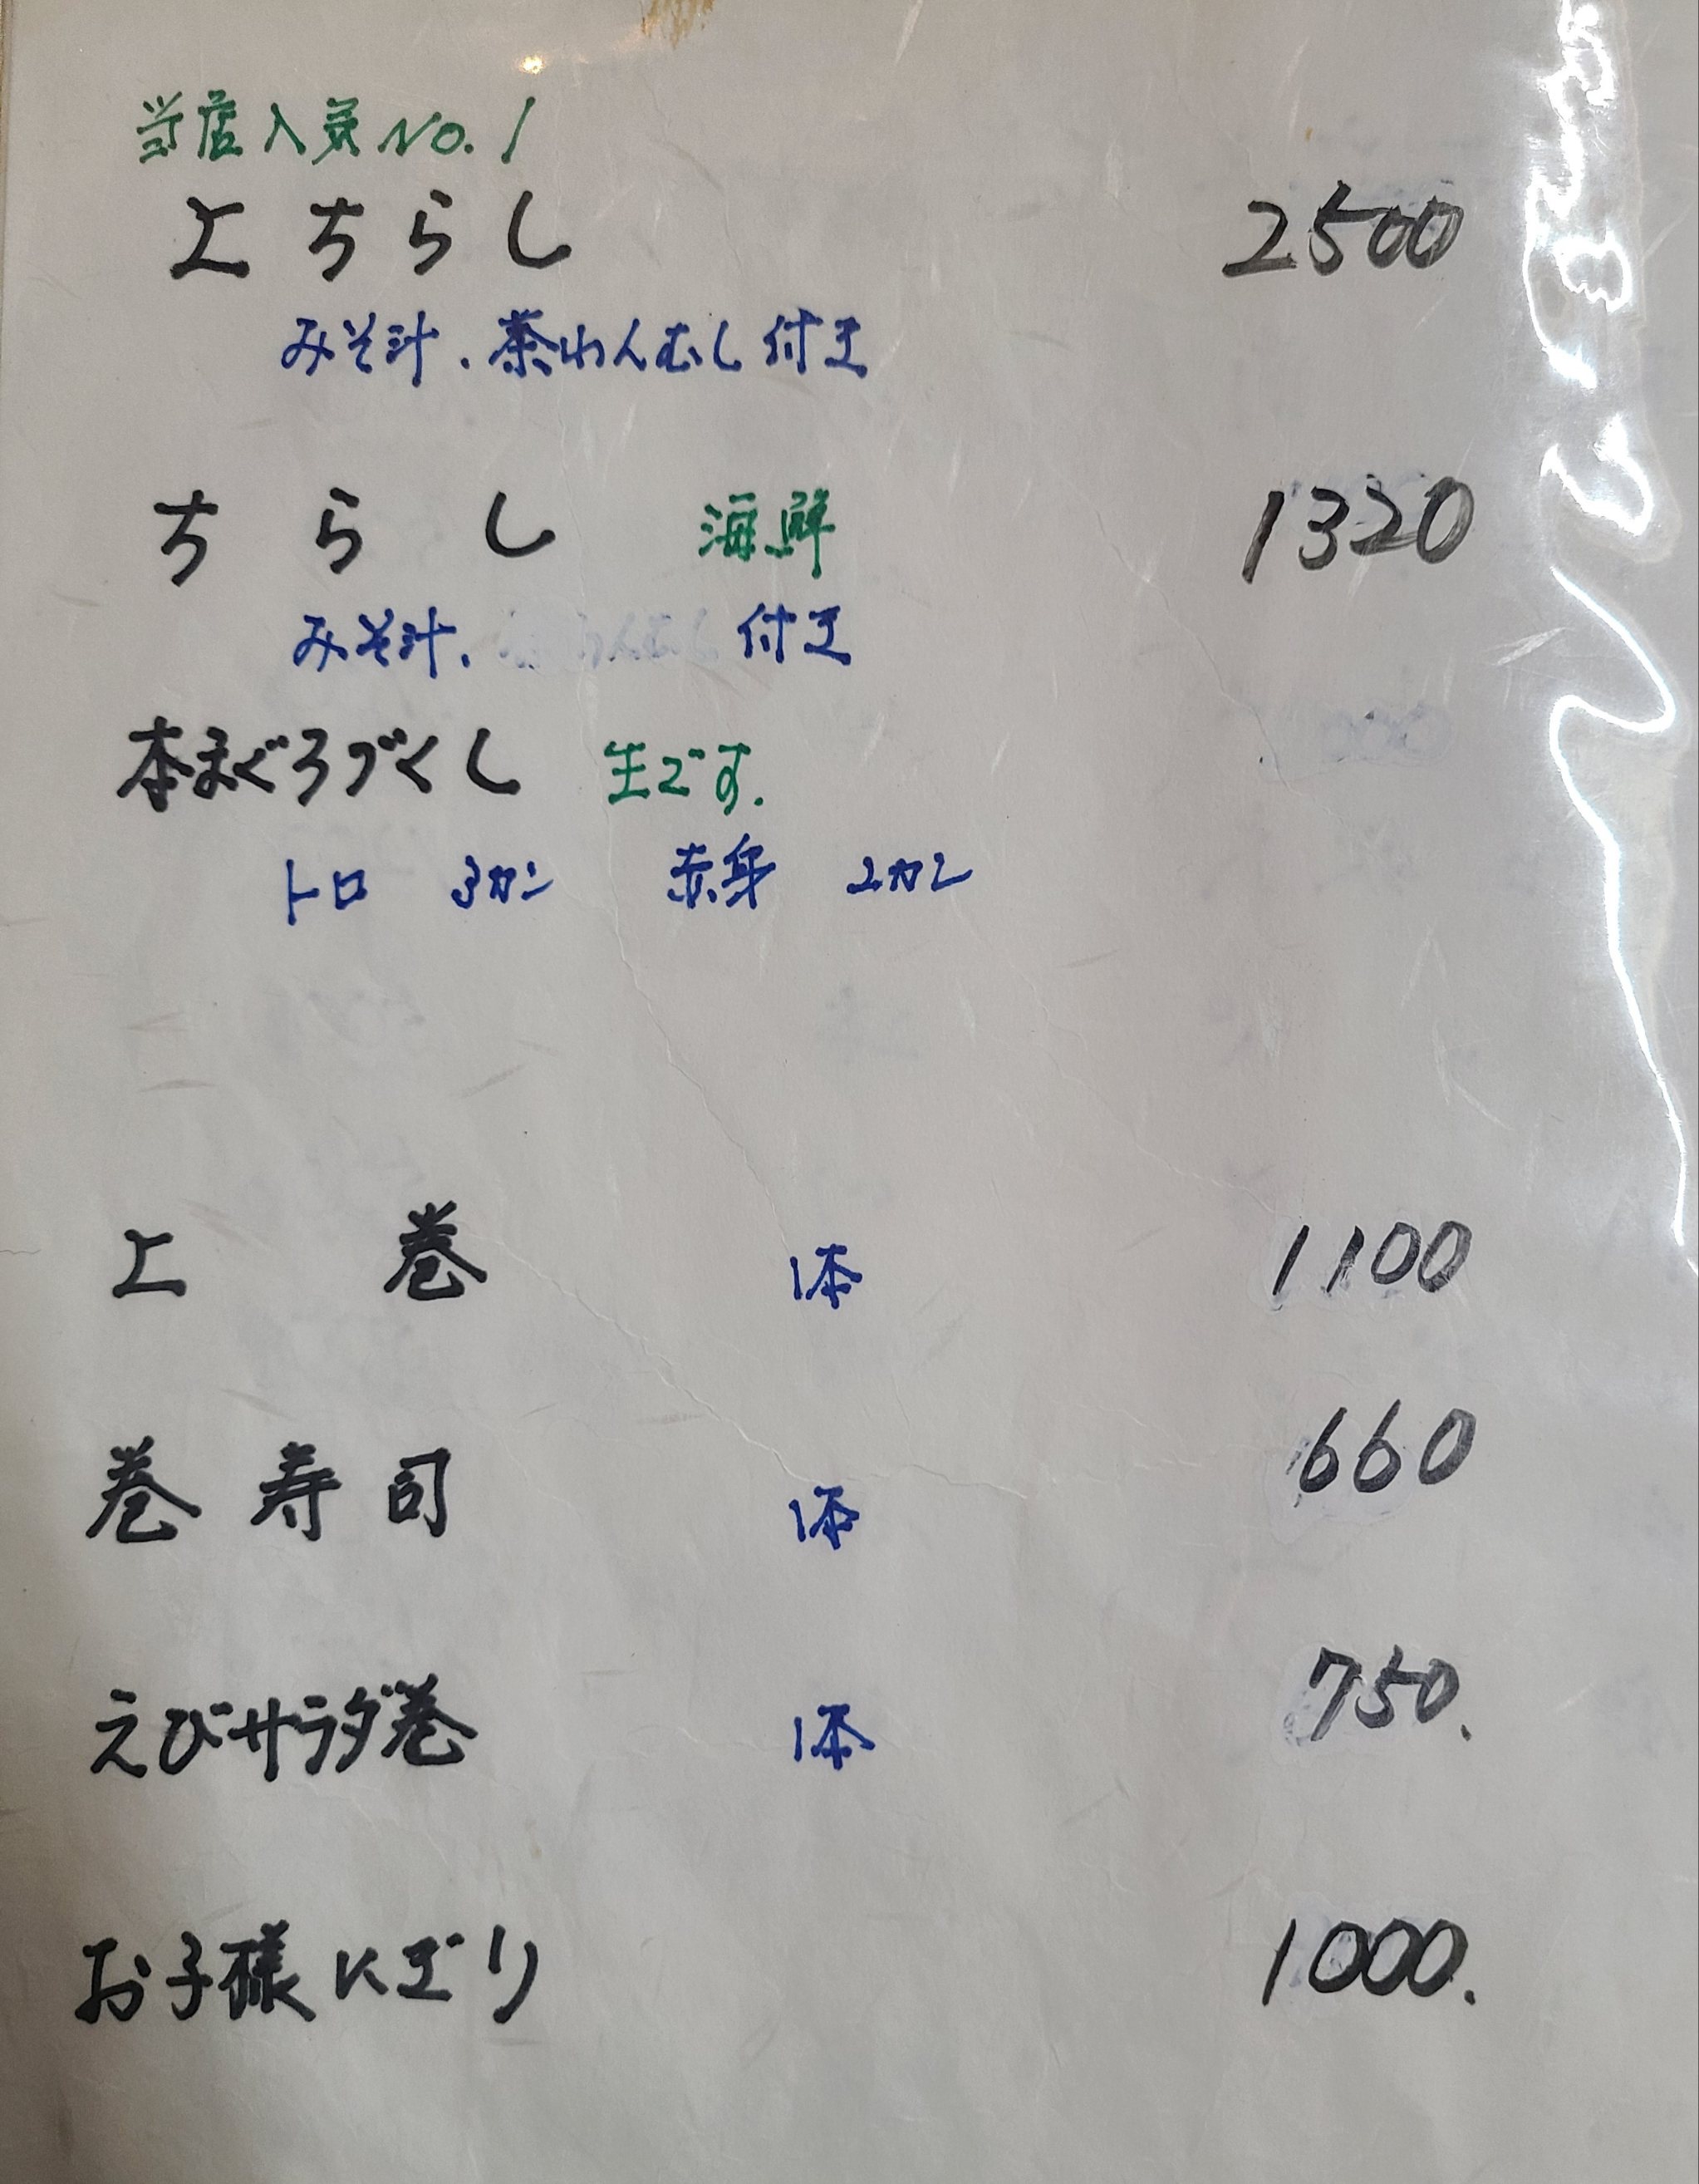 当店人気NO.1
上ちらし 2500
みそ汁.茶わんむし付き
ちらし 海鮮 1320
みそ汁. 付き
本まぐろづくし 生です.
トロ 3カン 赤身 2カン
上巻 1本 1100
巻寿司 1本 660
えびサラダ巻 1本 750.
お子様にぎり 1000.